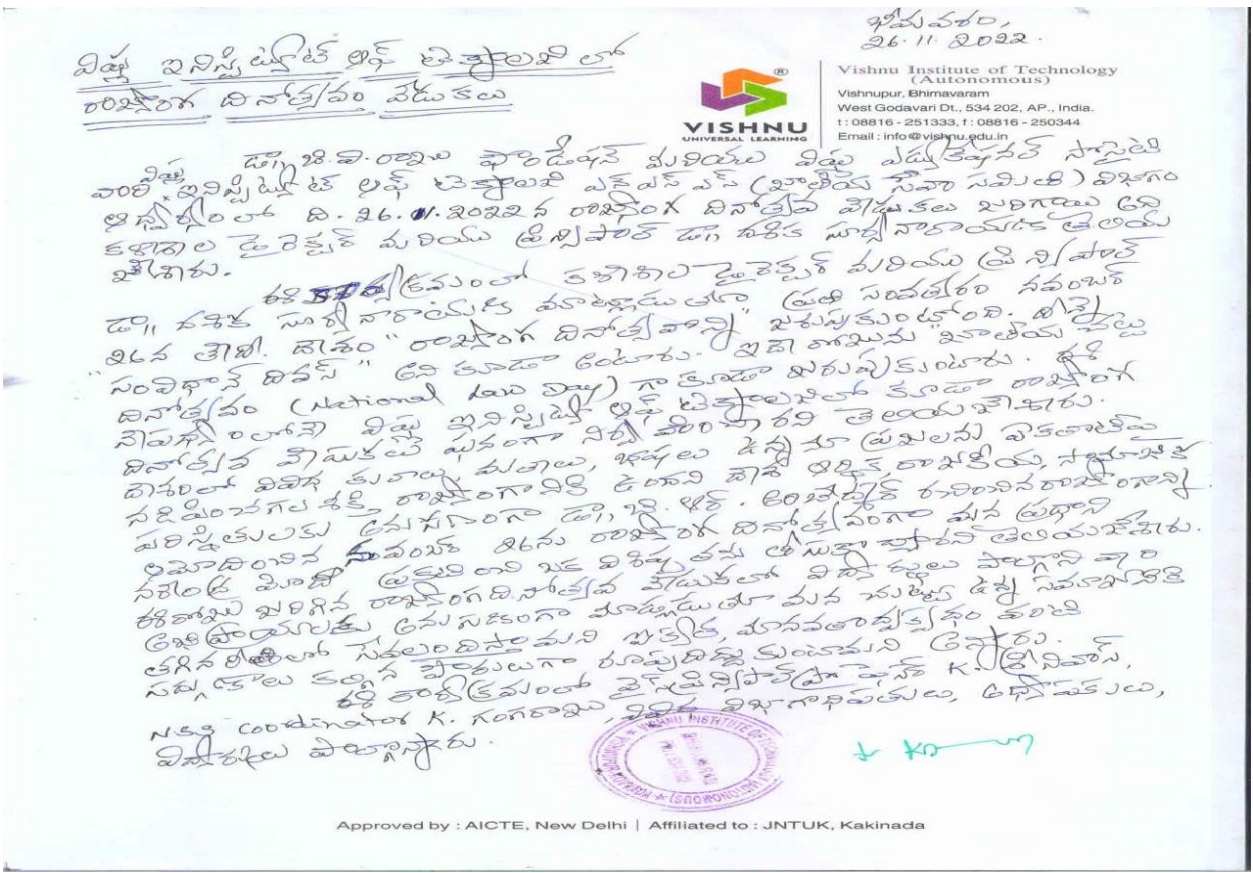 భీమవరం,
26.11.2022.
విష్ణు ఇనిస్టిట్యూట్ ఆఫ్ టెక్నాలజీ లో
రాజ్యాంగ దినోత్సవం వేడుకలు
®
VISHNU
UNIVERSAL LEARNING
Vishnu Institute of Technology
(Autonomous)
Vishnupur, Bhimavaram
West Godavari Dt., 534 202, AP., India.
t : 08816 - 251333, f : 08816 - 250344
Email : info@vishnu.edu.in
డా॥ బి.వి. రాజు ఫౌండేషన్ మరియు విష్ణు ఎడ్యుకేషనల్ సొసైటీ
వారి విష్ణు ఇనిస్టిట్యూట్ ఆఫ్ టెక్నాలజీ ఎన్ఎస్ఎస్ (జాతీయ సేవా సమితి) విభాగం
ఆధ్వర్యంలో ది. 26.11.2022 న రాజ్యాంగ దినోత్సవ వేడుకలు జరిగాయి అని
కళాశాల డైరెక్టర్ మరియు ప్రిన్సిపాల్ డా॥ దశిక సూర్యనారాయణ తెలియ
చేశారు.
ఈ కార్యక్రమంలో కళాశాల డైరెక్టర్ మరియు ప్రిన్సిపాల్
డా॥ దశిక సూర్యనారాయణ మాట్లాడుతూ ప్రతి సంవత్సరం నవంబర్
26న దేశం "రాజ్యాంగ దినోత్సవాన్ని" జరుపుకుంటోంది. దీన్నే
"సంవిధాన్ దివస్" అని కూడా అంటారు. ఇదే రోజును "జాతీయ చట్ట
దినోత్సవం (National Law Day) గా కూడా జరుపుకుంటారు. ఈ
నేపథ్యంలోనే విష్ణు ఇనిస్టిట్యూట్ ఆఫ్ టెక్నాలజీలో కూడా రాజ్యాంగ
దినోత్సవ వేడుకలు ఘనంగా నిర్వహించారని తెలియచేశారు.
దేశంలో వివిధ కులాలు, మతాలు, భాషలు ఉన్నా ప్రజలను ఏకతాటిపై
నడిపించగల శక్తి రాజ్యాంగానికి ఉందని దేశ ఆర్థిక, రాజకీయ, సామాజిక
పరిస్థితులకు అనుగుణంగా డా॥ బి.ఆర్. అంబేద్కర్ రచించిన రాజ్యాంగాన్ని
ఆమోదించిన నవంబర్ 26ను రాజ్యాంగ దినోత్సవంగా మన ప్రధాని
నరేంద్ర మోదీ ప్రకటించి ఒక విశిష్టతను తెలియచేశారు.
ఈరోజు జరిగిన రాజ్యాంగ దినోత్సవ వేడుకలో విద్యార్థులు పాల్గొని వారి
అభిప్రాయాలకు అనుగుణంగా మాట్లాడుతూ మన చుట్టూ ఉన్న సమాజానికి
తగిన రీతిలో సేవలందిస్తామని ఐక్యత, మానవతాదృక్పథం వంటి
సద్గుణాలు కల్గిన పౌరులుగా రూపుదిద్దుకుంటామని అన్నారు.
ఈ కార్యక్రమంలో వైస్ ప్రిన్సిపాల్ ప్రొఫెసర్ K. శ్రీనివాస్,
NSS coordinator K. గంగరాజు, వివిధ విభాగాధిపతులు, అధ్యాపకులు,
విద్యార్థులు పాల్గొన్నారు.
VISHNU INSTITUTE OF TECHNOLOGY (AUTONOMOUS)
Approved by : AICTE, New Delhi | Affiliated to : JNTUK, Kakinada